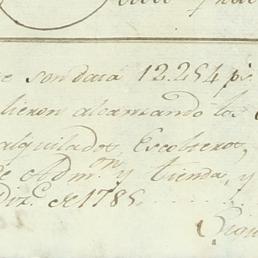 e son data 12.254 p.s
lieron alcanzando los
alquilados, Escobreros,
de Adm.on y tienda, y
Diz.e de 1785